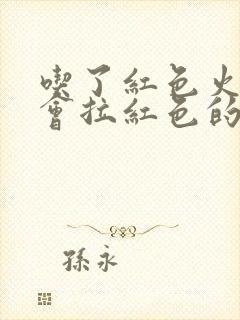 喫了紅色火
會拉紅色的
孫永